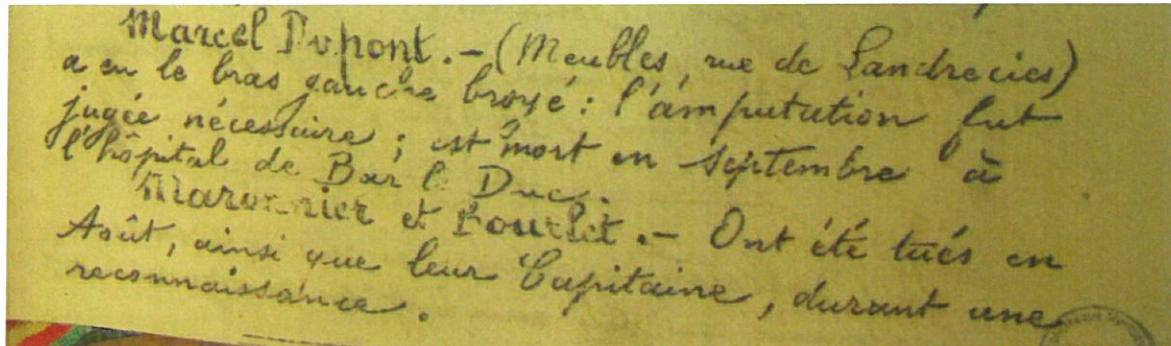 Marcel Dupont. – (Meubles, rue de Landrecies)
a eu le bras gauche broyé : l'amputation fut
jugée nécessaire ; est mort en septembre à
l'hôpital de Bar le Duc.
Maronnier et Bourlet. – Ont été tués en
Août, ainsi que leur Capitaine, durant une
reconnaissance.